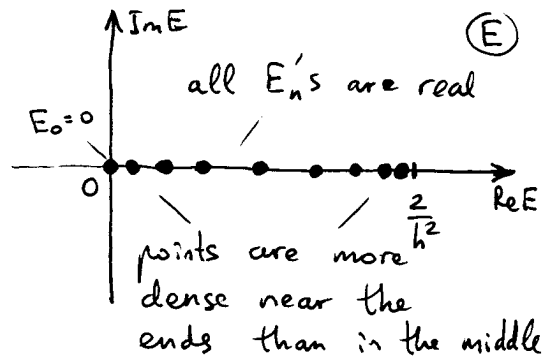 Im E
E
all Eₙ's are real
E₀=0
0
2/h²
Re E
points are more
dense near the
ends than in the middle